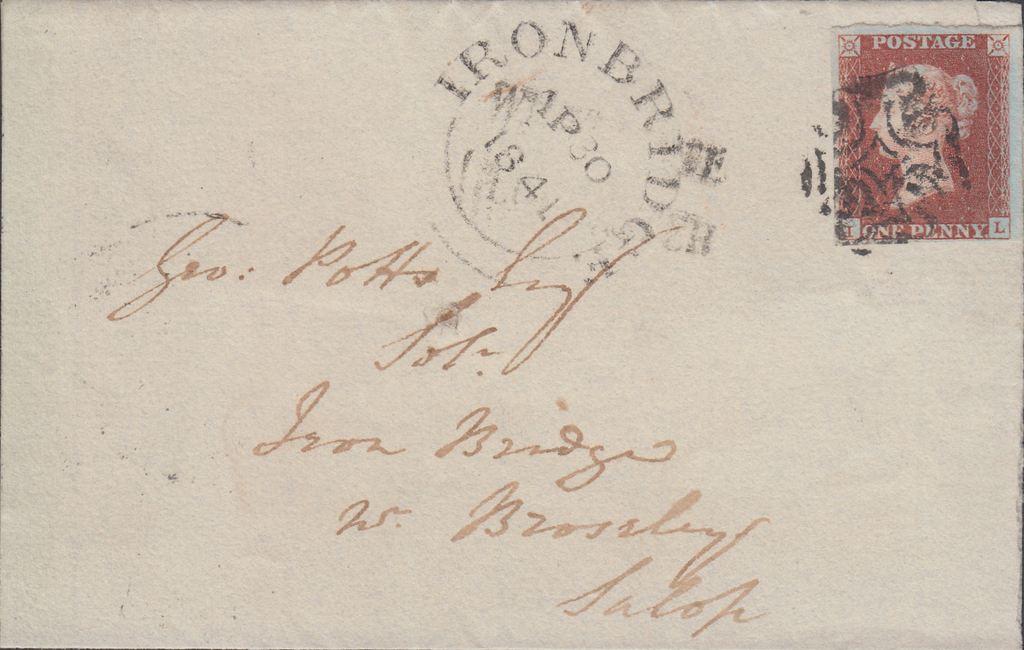 IRONBRIDGE
AP 30
1841
POSTAGE
I ONE PENNY L
Geo: Potts Esq
Solr.
Iron Bridge
nr. Broseley
Salop